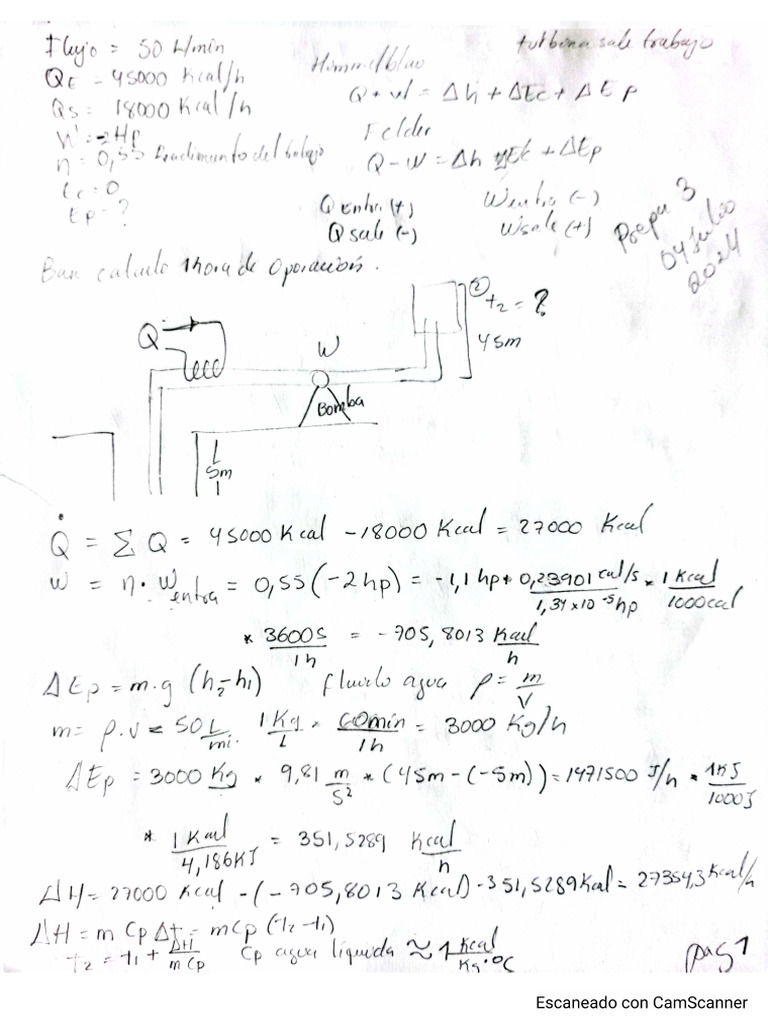 Flujo = 50 L/min
QE = 45000 Kcal/h
QS = 18000 Kcal/h
W = -2Hp
η = 0,55 Rendimiento del trabajo
Ec = 0
Ep = ?
Himmelblau
Q + W = Δh + ΔEc + ΔEp
Felder
Q - W = Δh + ΔEc + ΔEp
turbina sale trabajo
Q Entra (+)
Q sale (-)
W entra (-)
W sale (+)
Prepa 3
04 Julio
2024
calculo 1hora de Operación.
Q
W
Bomba
②
t2 = ?
45m
5m
Q̇ = Σ Q = 45000 Kcal - 18000 Kcal = 27000 Kcal
W = η · W entra = 0,55 (-2 hp) = -1,1 hp * 0,23901 cal/s / 1,34x10^-3 hp * 1 Kcal / 1000 cal
* 3600 S / 1 h = -705,8013 Kcal / h
ΔEp = m·g (h2-h1) fluido agua ρ = m / V
m = ρ.v = 50 L / mi. 1 Kg / L * 60 min / 1 h = 3000 Kg/h
ΔEp = 3000 Kg * 9,81 m / s² * (45m - (-5m)) = 1471500 J/h * 1KJ / 1000J
* 1 Kcal / 4,186KJ = 351,5289 Kcal / h
ΔH = 27000 Kcal - (-705,8013 Kcal) - 351,5289 Kcal = 27354,3 Kcal/h
ΔH = m Cp Δt = m Cp (t2 - t1)
t2 = t1 + ΔH / m Cp Cp agua líquida ≈ 1 Kcal / Kg·°C
pag 1
Escaneado con CamScanner